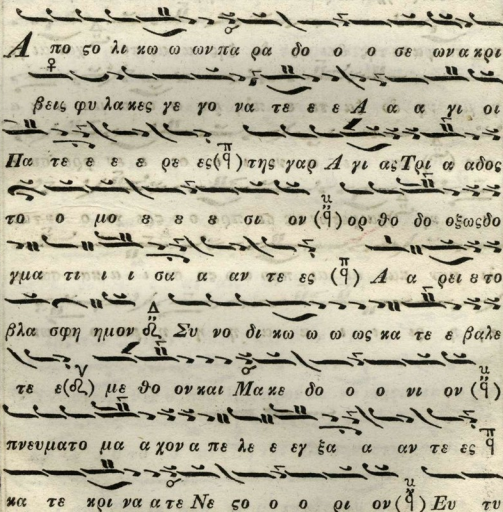 Α πο ϛο λι κω ω ων πα ρα δο ο ο σε ων α κρι
βεις φυ λα κες γε γο να τε ε ε Α α α γι οι
Πα τε ε ε ε ρε ες (π̈ ϥ) της γαρ Α γι ας Τρι α αδος
το ο μο ε ε ε σι ον (ϥ) ορ θο δο οξως δο
γμα τι ι ι σα α αν τε ες (π̈ ϥ) Α α ρει ȣ το
βλα σφη ημον Δ Συ νο δι κω ω ω ως κα τε ε βαλε
τε ε (ν) με θο ον και Μα κε δο ο ο νι ον (ϥ)
πνευματο μα α χον α πε λε ε εγ ξα α αν τε ες π̈ ϥ
κα τε κρι να α τε Νε ϛο ο ο ρι ον (ϥ) Ευ τυ